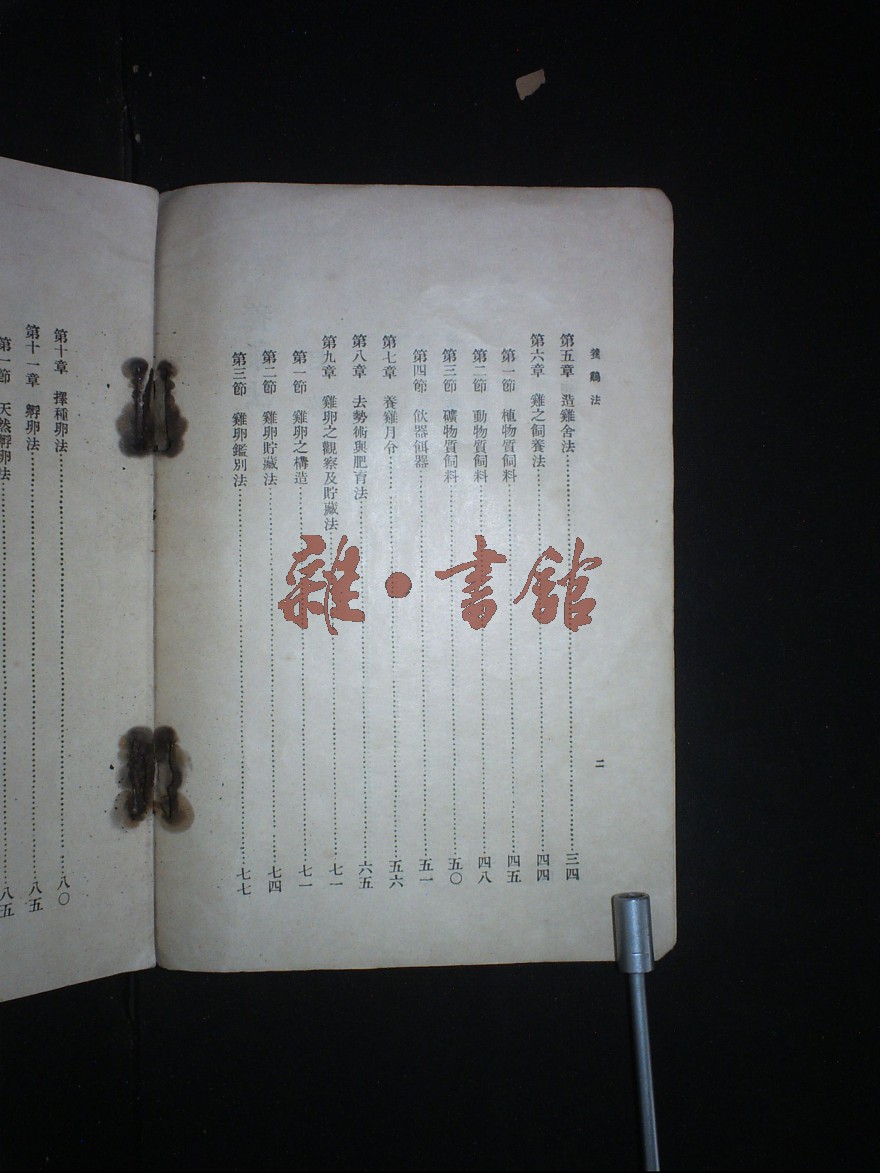 養鷄法
二
第五章　造雞舍法……三四
第六章　雞之飼養法……四四
第一節　植物質飼料……四五
第二節　動物質飼料……四八
第三節　礦物質飼料……五〇
第四節　飲器餌器……五一
第七章　養雞月令……五六
第八章　去勢術與肥育法……六五
第九章　雞卵之觀察及貯藏法……七一
第一節　雞卵之構造……七一
第二節　雞卵貯藏法……七四
第三節　雞卵鑑別法……七七
第十章　擇種卵法……八〇
第十一章　孵卵法……八五
第一節　天然孵卵法……八五
雜·書館